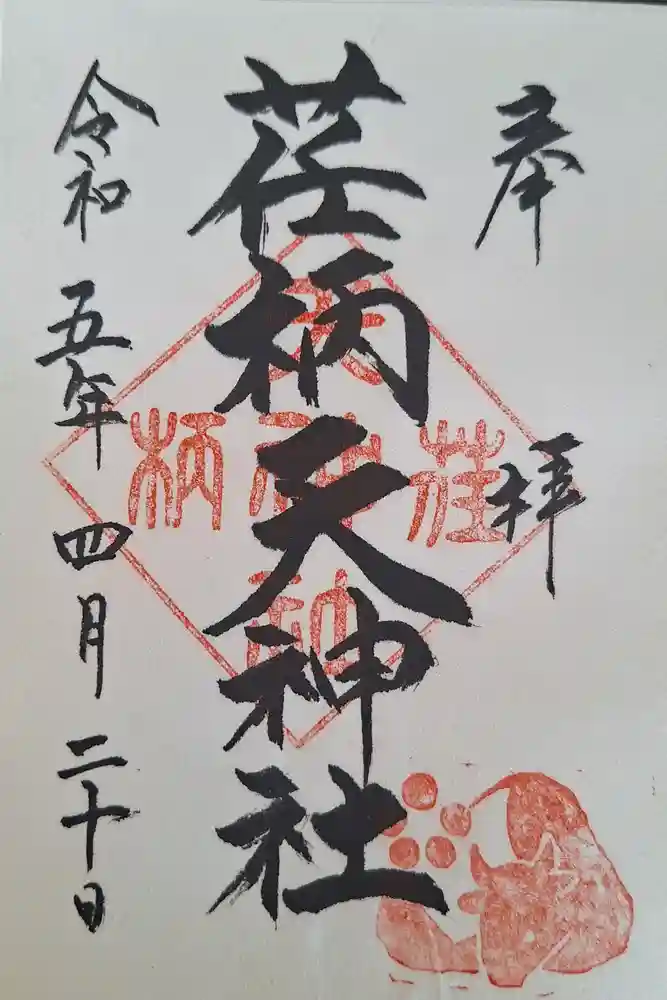 奉拝
荏柄天神社
令和五年四月二十日